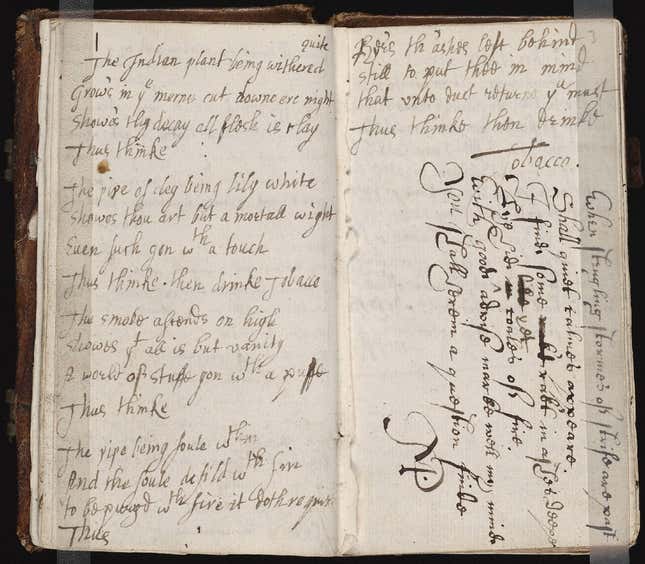 quite
The Indian plant being withered
Grow's in yᵉ morne cut downe ere night
Showes thy decay all flesh is clay
Thus thinke
The pipe of cley being lily white
Showes thou art but a mortall wight
Even such gon wᵗʰ a touch
Thus thinke then drinke Tobacco
The smoke assends on high
Showes yᵗ all is but vanity
A world of stuffe gon wᵗʰ a puffe
Thus thinke
The pipe being foule wᵗʰin
And the soule defild wᵗʰ sin
to be purgd wᵗʰ fire it doth require
Thus
Here's th'ashes left behind
still to put thee in mind
that vnto dust returne yᵘ must
Thus thinke then drinke
Tobacco.
When stormes of strife are past
Shall quiet calmes appeare
I find some in ashes deepe
coales of fire.
With good advise marke well my minde
You shall herein a question finde